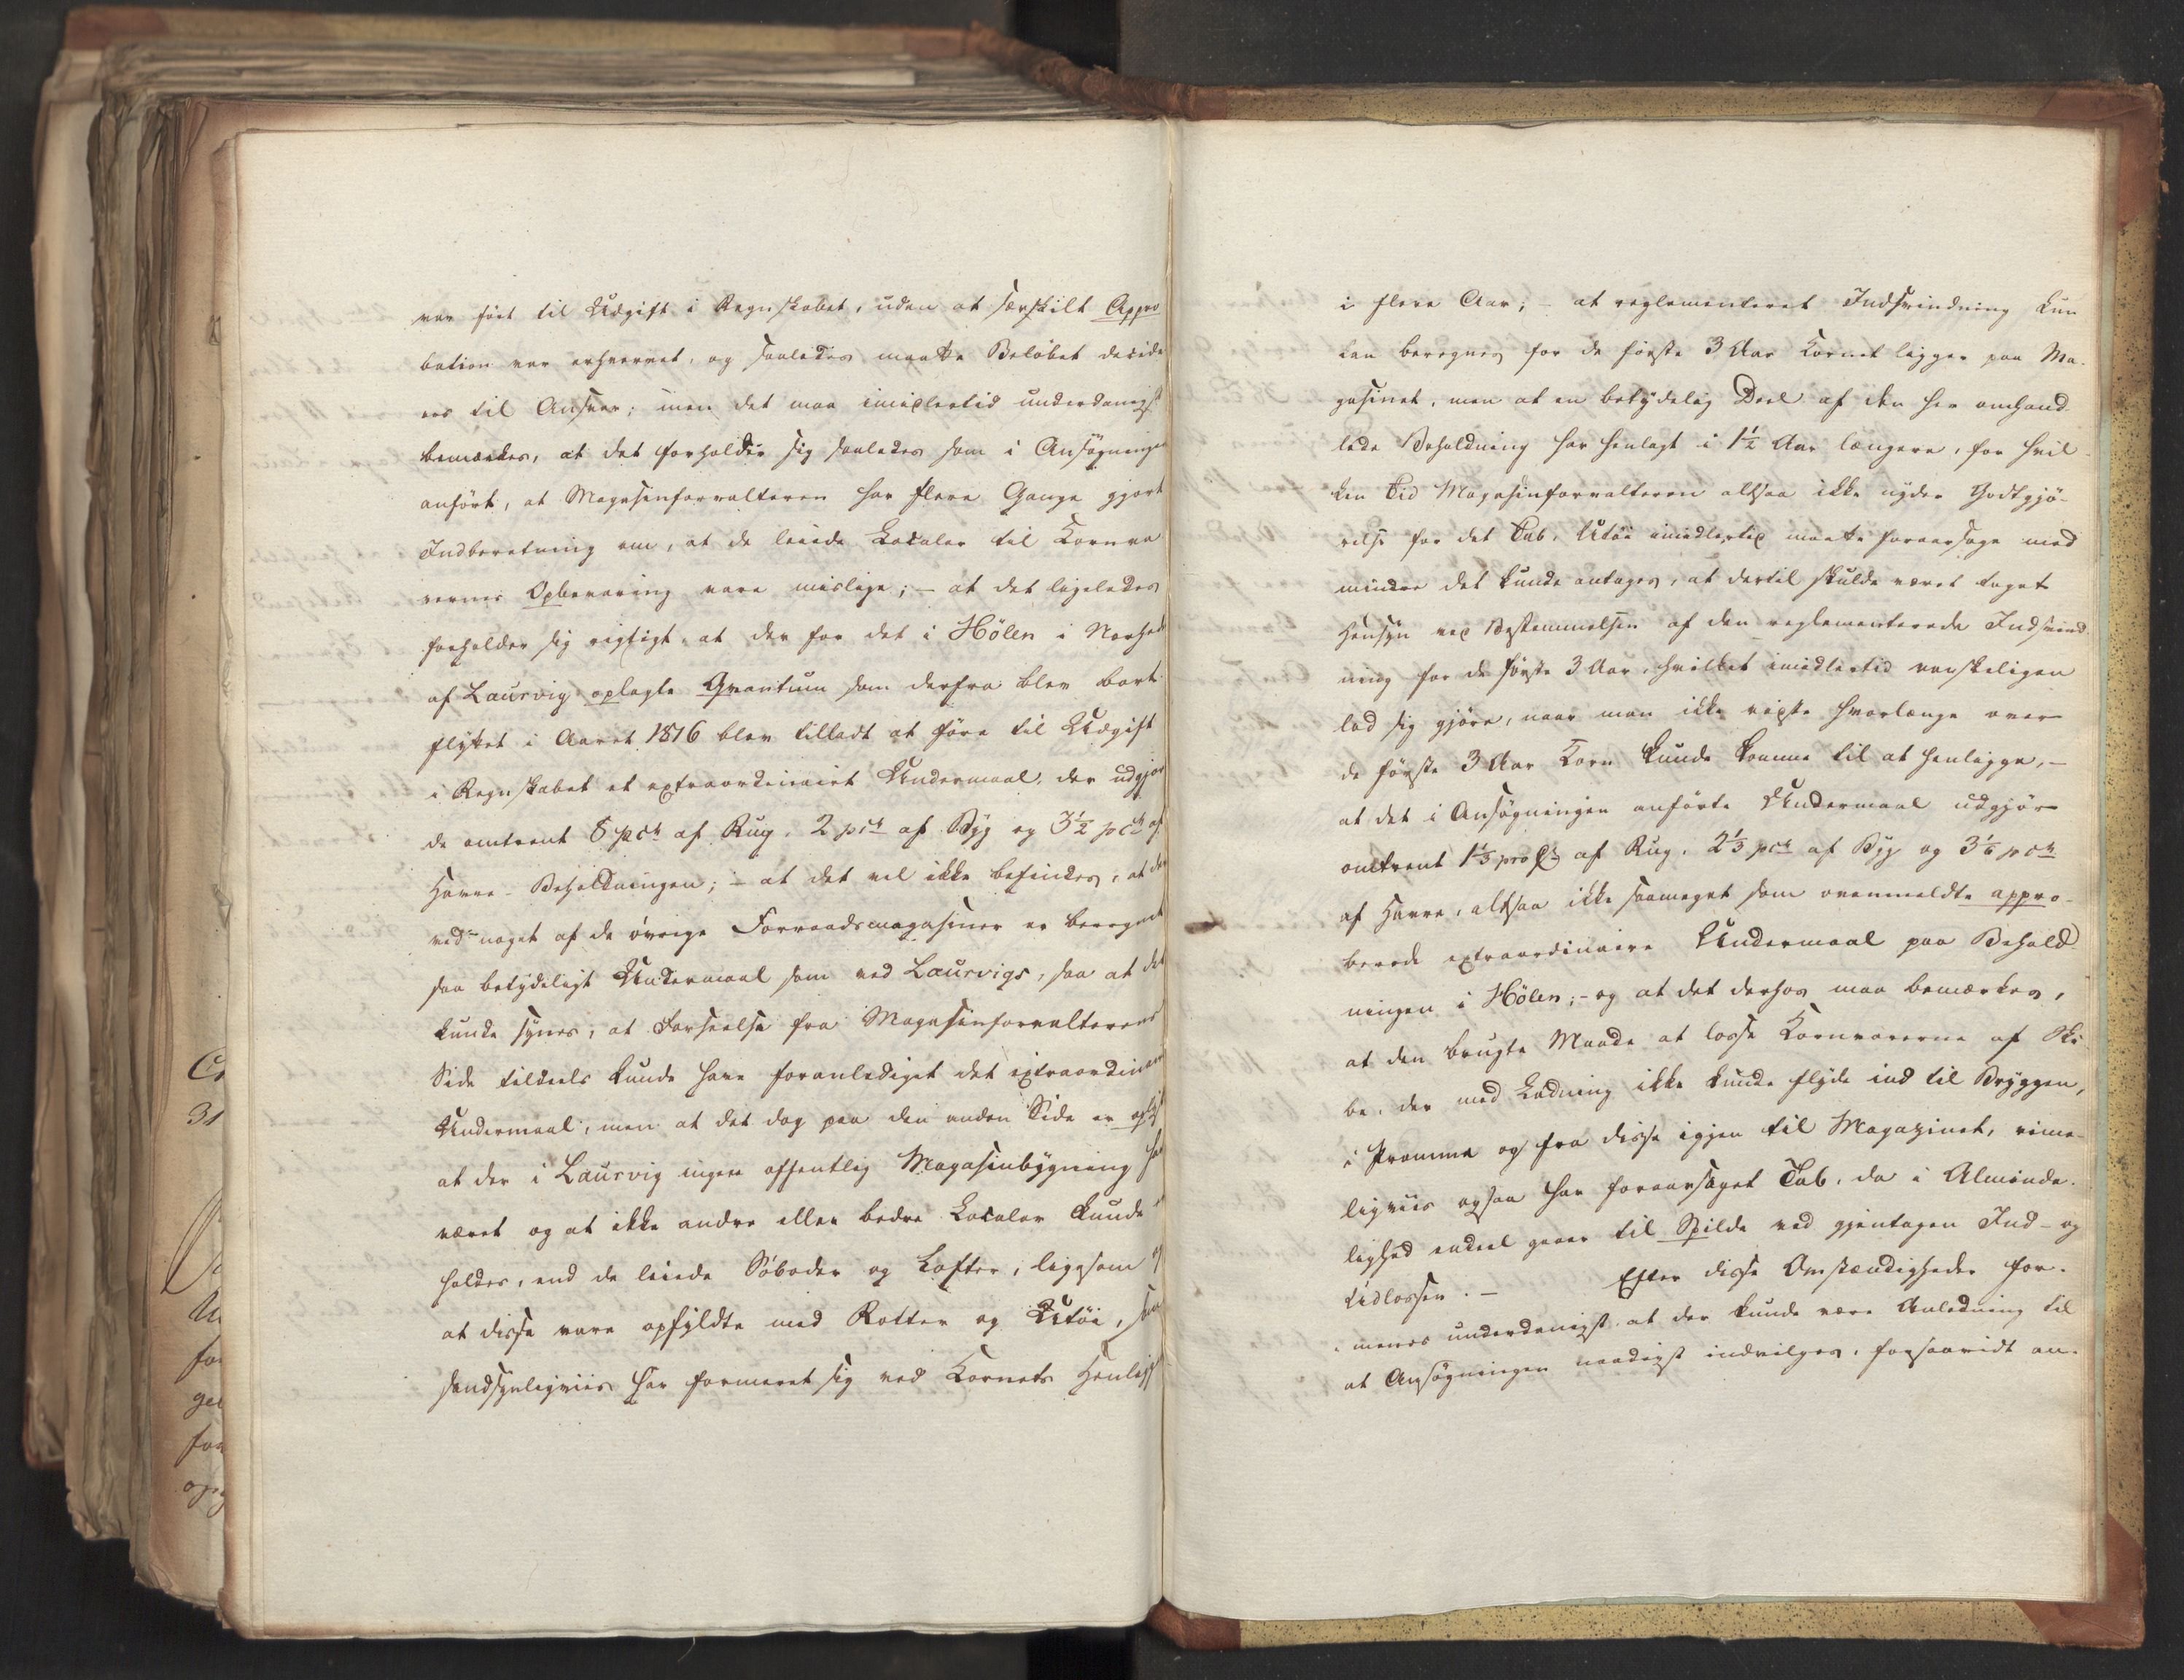 var ført til Udgift i Regnskabet, uden at særskilt Appro
bation var erhvervet, og saaledes maatte Beløbet decide
res til Ansvar; men det maa imidlertid underdanigst
bemærkes, at det forholder sig saaledes som i Ansøgningen
anført, at Magasinforvalteren har flere Gange gjort
Indberetning om, at de leiede Localer til Kornva
rernes Opbevaring vare mislige; – at det ligeledes
forholder sig rigtigt, at der for det i Hölen i Nærhed
af Laurvig oplagte Qvantum som derfra blev bort
flyttet i Aaret 1816 blev tilladt at føre til Udgift
i Regnskabet et extraordinairt Undermaal, der udgjor
de omtrent 8 pct af Rug, 2 pct af Byg og 3½ pct af
Havre-Beholdningen; – at det vel ikke befindes, at der
ved noget af de øvrige Forraadsmagasiner er beregnet
saa betydeligt Undermaal som ved Laurvigs, saa at det
kunde synes, at Forseelse fra Magasinforvalterens
Side tildeels kunde have foranlediget det extraordinaire
Undermaal, men at det dog paa den anden Side er oplyst
at der i Laurvig ingen offentlig Magasinbygning har
været og at ikke andre eller bedre Localer kunde er
holdes, end de leiede Søboder og Lofter, ligesom og
at disse vare opfyldte med Rotter og Utøi, som
sandsynligviis har formeret sig ved Kornets Henliggen
i flere Aar; – at reglementeret Indsvindning kun
kan beregnes for de første 3 Aar Kornet ligger paa Ma-
gasinet, men at en betydelig Deel af den her omhand-
lede Beholdning har henlagt i 1½ Aar længere, for hvil-
ken Tid Magasinforvalteren altsaa ikke nyder Godtgjø-
relse for det Tab, Utøi imidlertid maatte foraarsage med
mindre det kunde antages, at dertil skulde været taget
Hensyn ved Bestemmelsen af den reglementerede Indsvind
ning for de første 3 Aar, hvilket imidlertid vanskeligen
lod sig gjøre, naar man ikke vidste hvorlænge over
de første 3 Aar Korn kunde komme til at henligge, –
at det i Ansøgningen anførte Undermaal udgjør
omtrent 1⅓ pro Ct af Rug, 2⅓ pct af Byg og 3⅙ pct
af Havre, altsaa ikke saameget som ovenmeldte appro-
berede extraordinaire Undermaal paa Behold-
ningen i Hölen; – og at det derhos maa bemærkes,
at den brugte Maade at losse Kornvarerne af Ski-
be, der med Ladning ikke kunde flyde ind til Bryggen,
i Pramme og fra disse igjen til Magazinet, rime-
ligviis ogsaa har foraarsaget Tab, da i Alminde-
lighed endeel gaaer til Spilde ved gjentagen Ind- og
Udlossen. – Efter disse Omstændigheder for-
menes underdanigst, at der kunde være Anledning til
at Ansøgningen naadigst indvilges, forsaavidt an-